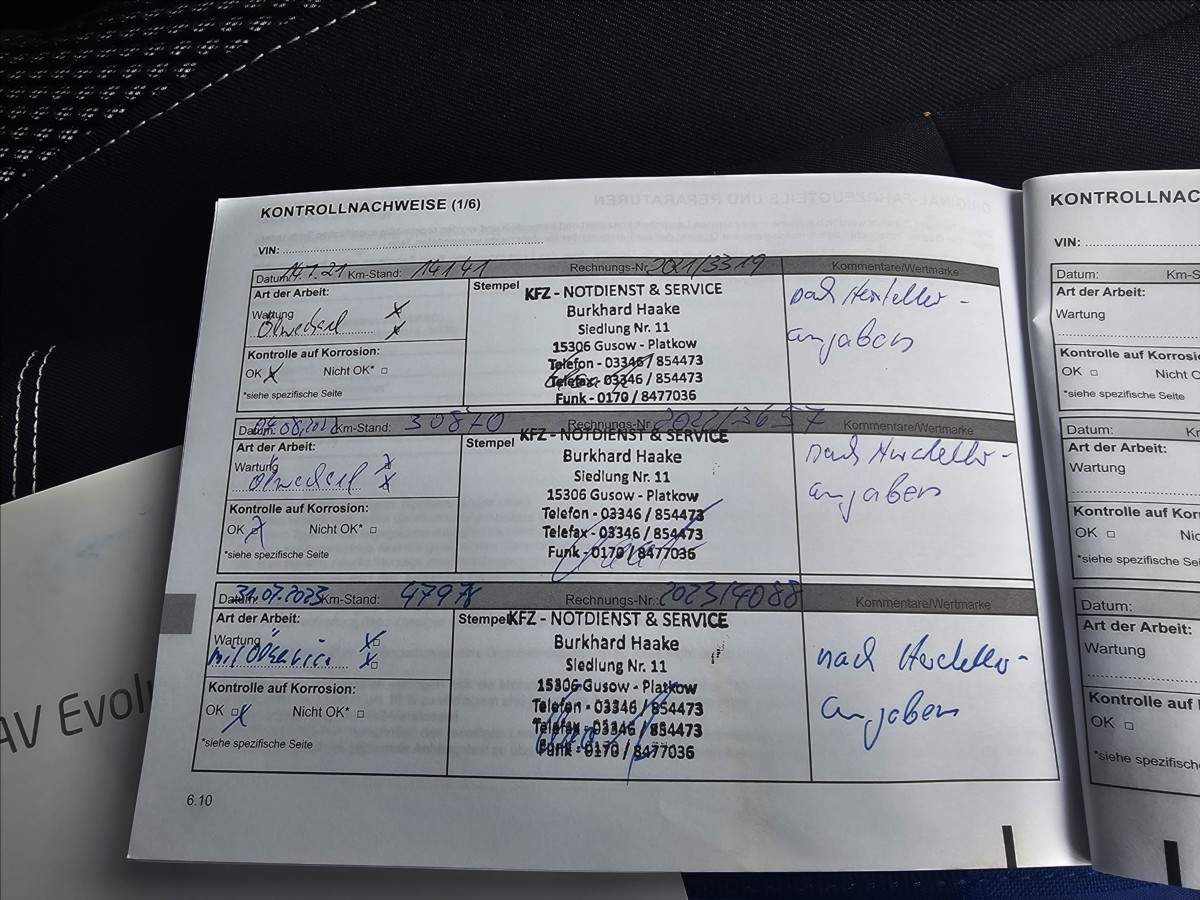 KONTROLLNACHWEISE (1/6)
VIN:
Datum: 14.7.21 Km-Stand: 14141 Rechnungs-Nr. 2021/3319 Kommentare/Wertmarke
Art der Arbeit:
Wartung
Ölwechsel
Kontrolle auf Korrosion:
OK Nicht OK* □
*siehe spezifische Seite
Stempel
KFZ - NOTDIENST & SERVICE
Burkhard Haake
Siedlung Nr. 11
15306 Gusow - Platkow
Telefon - 03346 / 854473
Telefax - 03346 / 854473
Funk - 0170 / 8477036
nach Hersteller-
angaben
Datum: 04.08.2022 Km-Stand: 30870 Rechnungs-Nr. 2022/3657 Kommentare/Wertmarke
Art der Arbeit:
Wartung
Ölwechsel
Kontrolle auf Korrosion:
OK Nicht OK* □
*siehe spezifische Seite
Stempel
KFZ - NOTDIENST & SERVICE
Burkhard Haake
Siedlung Nr. 11
15306 Gusow - Platkow
Telefon - 03346 / 854473
Telefax - 03346 / 854473
Funk - 0170 / 8477036
nach Hersteller-
angaben
Datum: 31.07.2023 Km-Stand: 47978 Rechnungs-Nr.: 2023/4088 Kommentare/Wertmarke
Art der Arbeit:
Wartung
mit Ölservice
Kontrolle auf Korrosion:
OK Nicht OK* □
*siehe spezifische Seite
Stempel
KFZ - NOTDIENST & SERVICE
Burkhard Haake
Siedlung Nr. 11
15306 Gusow - Platkow
Telefon - 03346 / 854473
Telefax - 03346 / 854473
Funk - 0170 / 8477036
nach Hersteller-
angaben
6.10
KONTROLLNAC
VIN:
Datum: Km-S
Art der Arbeit:
Wartung
Kontrolle auf Korrosio
OK □ Nicht O
*siehe spezifische Seite
Datum: Km
Art der Arbeit:
Wartung
Kontrolle auf Korros
OK □ Nic
*siehe spezifische Sei
Datum:
Art der Arbeit:
Wartung
Kontrolle auf
OK □
*siehe spezifisch
AV Evolu